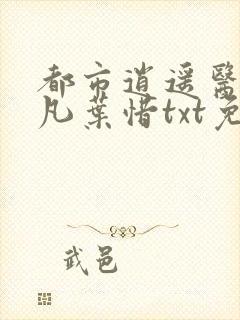 都市逍遥醫
凡葉惜txt免
武邑